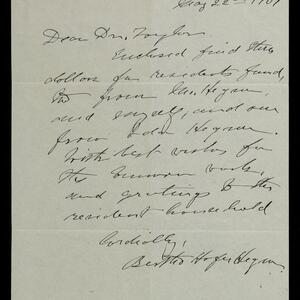 May 22nd 1909
Dear Dr. Taylor
Enclosed find three
dollars for residents fund,
from Mr. Hegner
and myself, and one
from Hegner.
With best wishes for
the summer work,
and greetings to the
resident household
Cordially,
Bertha Hofer Hegner